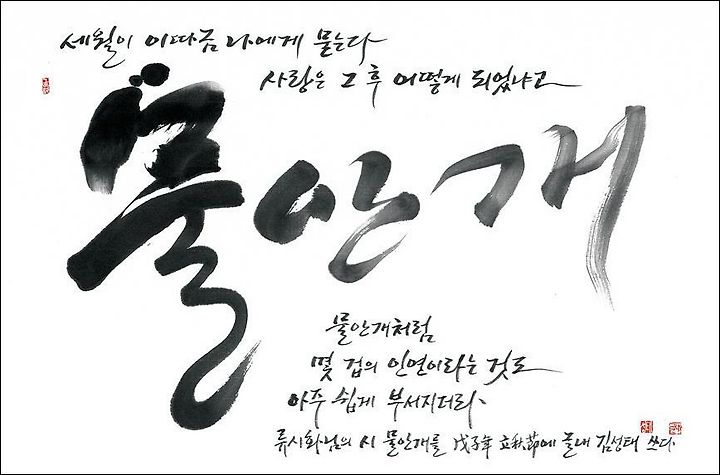 세월이 이따금 나에게 묻는다
사랑은 그 후 어떻게 되었냐고
물안개
물안개처럼
몇 겁의 인연이라는 것도
아주 쉽게 부서지더라.
류시화님의 시 물안개를 戊子年 立秋節에 물내 김성태 쓰다.